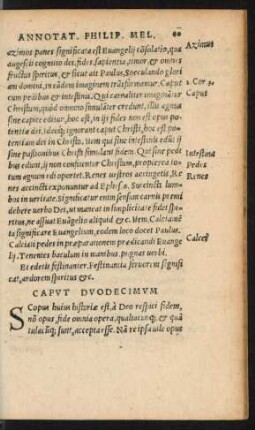 ANNOTAT. PHILIP. MEL. 60
azimos panes significata est Euangelij cõsolatio, qua
Azimus
augescit cognitio dei, fides, sapientia, timor, & omnes
fructus spiritus, & sicut ait Paulus, Speculando glori
am domini, in eãdem imaginem trãsformamur. Caput
2. Cor. 3
cum pedibus & intestinis. Qui carnaliter imaginãtur
Caput
Christum, quod omnino simulãter credunt, illis agnus
sine capite editur, hoc est, in ijs fidei non est opus po
tentia dei, ideoq; ignorant caput Christi, hoc est, po
tentiam dei in Christo. Iam qui sine intestinis edũt ij
sine passionibus Christi simulant fidem. Qui sine pedi
Intestina
bus edunt, ij non confitentur Christum, propterea to
Pedes
tum agnum edi oportet. Renes uestros accingetis. Re
Renes
nes accincti exponuntur ad Ephesios. Succincti lum-
bos in ueritate. Significatur enim sensum carnis premi
debere uerbo Dei, ut maneat in simplicitate fidei spiri
tus, ne assuat Euãgelio aliquid &c. Item, Calciamẽ
ta significare Euangelium, eodem loco docet Paulus.
Calciati pedes in præparationem prædicandi Euange
Calcei
lij. Tenentes baculum in manibus, pugnas uerbi.
Et edetis festinanter. Festinantia feruorem signifi
cat, ardorem spiritus &c.
CAPVT DVODECIMVM
Scopus huius historiæ est, à Deo respici fidem,
nõ opus, fide omnia opera, qualiacunq; & quã
tulacũq; sunt, accepta esse. Nã re ipsa uile opus